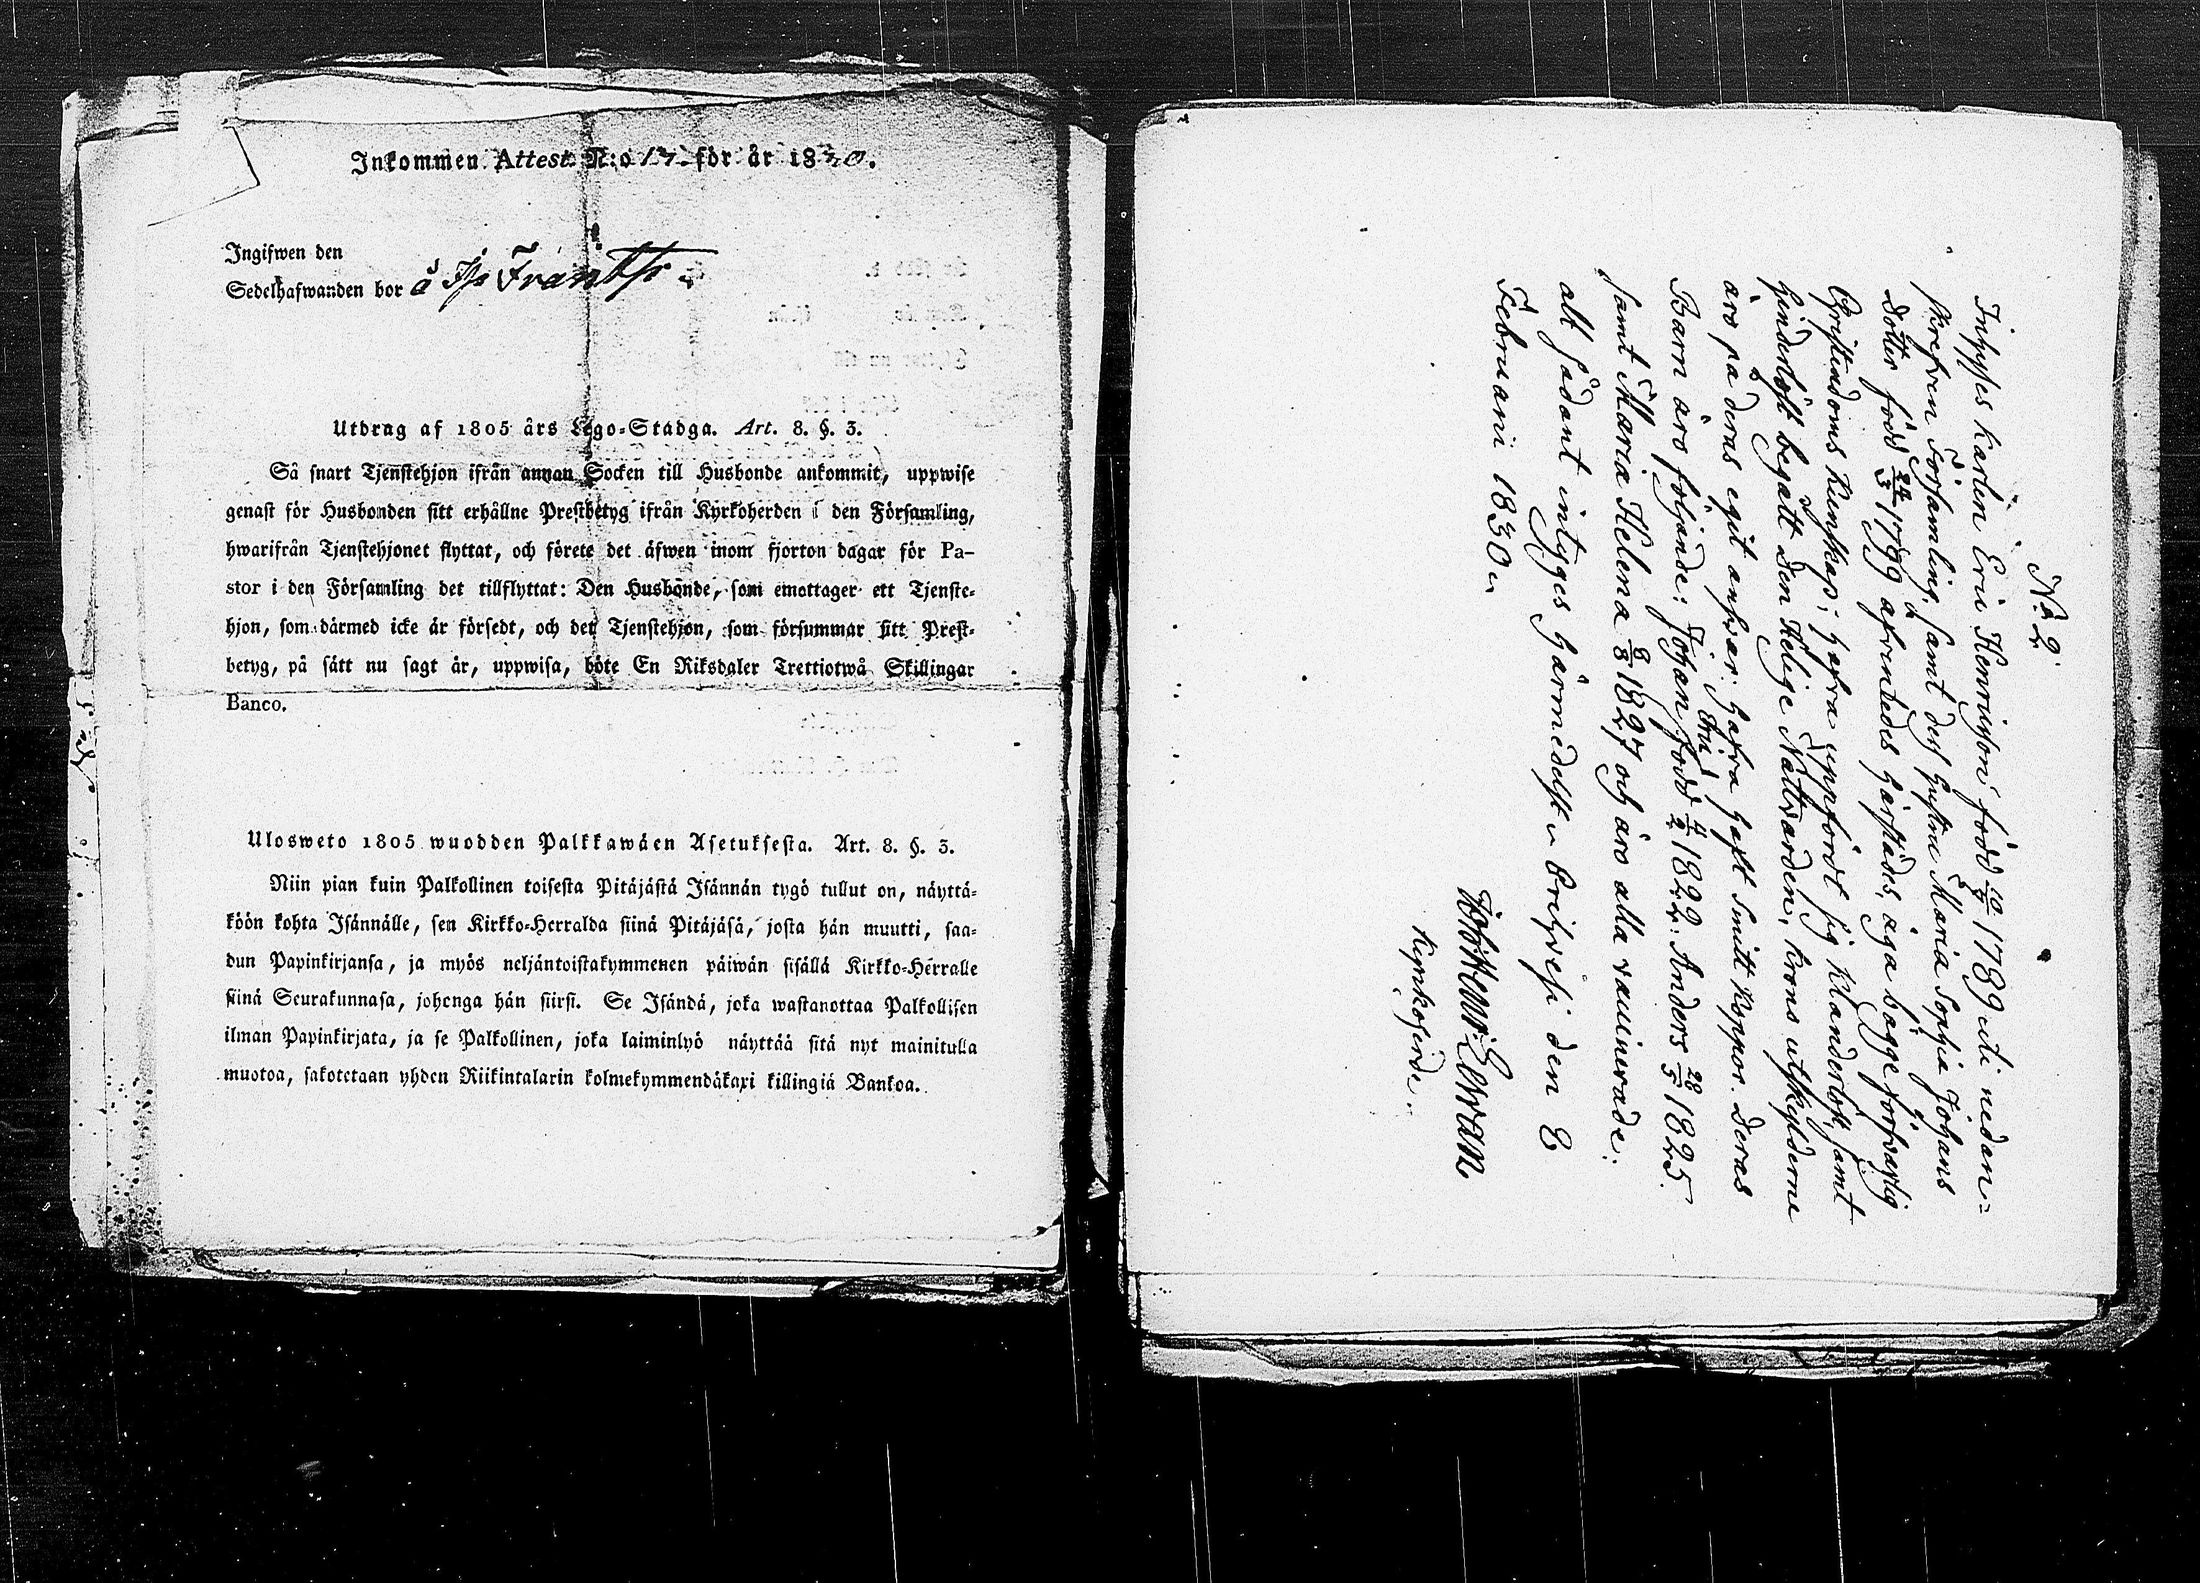 Inkommen Attest N:o 13. för år 1830.
Ingifwen den
Sedelhafwanden bor å
Utdrag af 1805 års Lego-Stadga. Art. 8. §. 3.
Så snart Tjenstehjon ifrån annan Socken till Husbonde ankommit, uppwise
genast för Husbonden sitt erhållne Prestbetyg ifrån Kyrkoherden i den Församling,
hwarifrån Tjenstehjonet flyttat, och förete det äfwen inom fjorton dagar för Pa-
stor i den Församling det tillflyttat: Den Husbonde, som emottager ett Tjenste-
hjon, som därmed icke är försedt, och det Tjenstehjon, som försummar sitt Prest-
betyg, på sätt nu sagt är, uppwisa, böte En Riksdaler Trettiotwå Skillingar
Banco.
Ulosweto 1805 wuodden Palkkawäen Asetuksesta. Art. 8. §. 3.
Niin pian kuin Palkollinen toisesta Pitäjästä Isännän tygö tullut on, näyttä-
köön kohta Isännälle, sen Kirkko-Herralda siinä Pitäjäsä, josta hän muutti, saa-
dun Papinkirjansa, ja myös neljäntoistakymmenen päiwän sisällä Kirkko-Herralle
siinä Seurakunnasa, johonga hän siirsi. Se Isändä, joka wastanottaa Palkollisen
ilman Papinkirjata, ja se Palkollinen, joka laiminlyö näyttää sitä nyt mainitulla
muotoa, sakotetaan yhden Riikintalarin kolmekymmendäkaxi killingiä Bankoa.
No 2.
Inhyses karlen Eric Henricsson född 19/7 1789 uti nedan-
skrefven Församling, samt dess hustru Maria Sophia Johans
dotter född 24/3 1799 afvenledes härstädes, äga bägge försvarlig
Christendoms kunskap; hafva uppfördt sig klanderlöst, samt
hinderlöst begått den Helige Nattvarden. Krono utskylderne
äro på deras eget ansvar. hafva haft smitt koppor. Deras
Barn äro följande: Johan Eric född 4/2 1822. Anders 28/5 1825
samt Maria Helena 8/8 1827 och äro alla vaccinerade.
alt sådant intyges härmedelst. den 8
Februarii 1830.
Kyrkoherde.